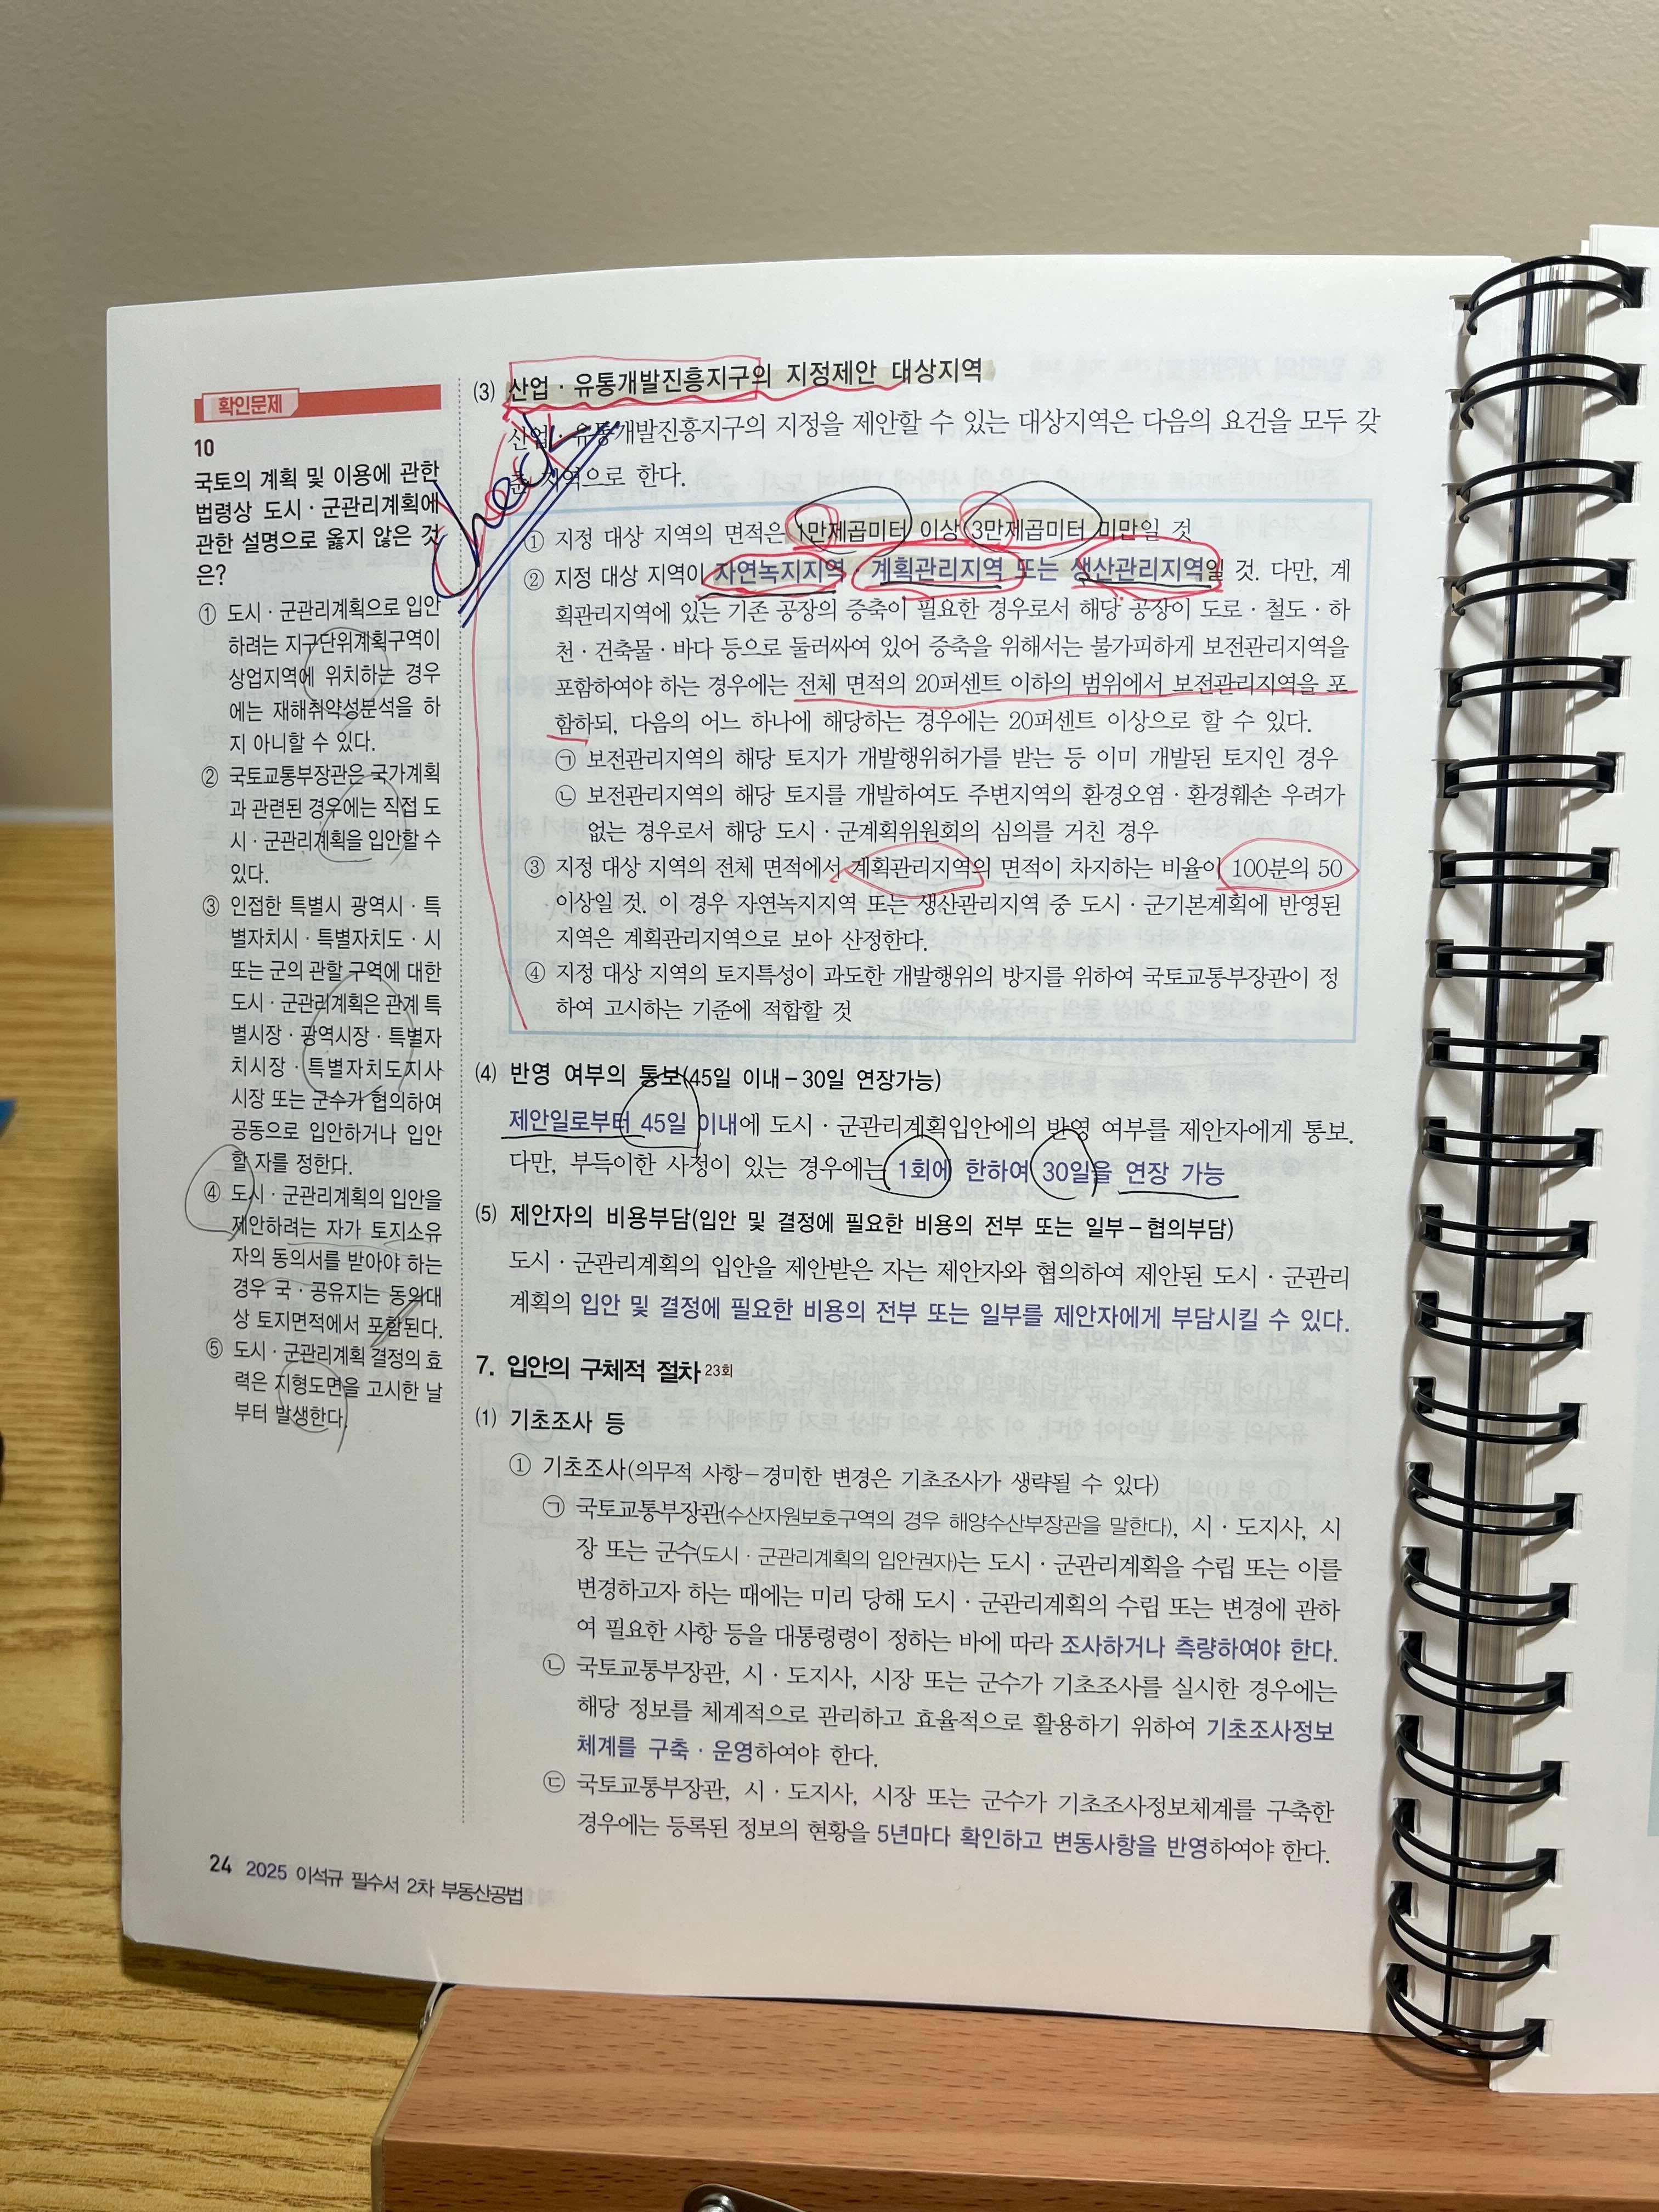 확인문제
10
국토의 계획 및 이용에 관한
법령상 도시·군관리계획에
관한 설명으로 옳지 않은 것
은?
① 도시·군관리계획으로 입안
하려는 지구단위계획구역이
상업지역에 위치하는 경우
에는 재해취약성분석을 하
지 아니할 수 있다.
② 국토교통부장관은 국가계획
과 관련된 경우에는 직접 도
시·군관리계획을 입안할 수
있다.
③ 인접한 특별시 광역시·특
별자치시·특별자치도·시
또는 군의 관할 구역에 대한
도시·군관리계획은 관계 특
별시장·광역시장·특별자
치시장·특별자치도지사
시장 또는 군수가 협의하여
공동으로 입안하거나 입안
할 자를 정한다.
④ 도시·군관리계획의 입안을
제안하려는 자가 토지소유
자의 동의서를 받아야 하는
경우 국·공유지는 동의대
상 토지면적에서 포함된다.
⑤ 도시·군관리계획 결정의 효
력은 지형도면을 고시한 날
부터 발생한다.
check
(3) 산업·유통개발진흥지구의 지정제안 대상지역
산업·유통개발진흥지구의 지정을 제안할 수 있는 대상지역은 다음의 요건을 모두 갖
춘 지역으로 한다.
① 지정 대상 지역의 면적은 1만제곱미터 이상 3만제곱미터 미만일 것
② 지정 대상 지역이 자연녹지지역·계획관리지역 또는 생산관리지역일 것. 다만, 계
획관리지역에 있는 기존 공장의 증축이 필요한 경우로서 해당 공장이 도로·철도·하
천·건축물·바다 등으로 둘러싸여 있어 증축을 위해서는 불가피하게 보전관리지역을
포함하여야 하는 경우에는 전체 면적의 20퍼센트 이하의 범위에서 보전관리지역을 포
함하되, 다음의 어느 하나에 해당하는 경우에는 20퍼센트 이상으로 할 수 있다.
㉠ 보전관리지역의 해당 토지가 개발행위허가를 받는 등 이미 개발된 토지인 경우
㉡ 보전관리지역의 해당 토지를 개발하여도 주변지역의 환경오염·환경훼손 우려가
없는 경우로서 해당 도시·군계획위원회의 심의를 거친 경우
③ 지정 대상 지역의 전체 면적에서 계획관리지역의 면적이 차지하는 비율이 100분의 50
이상일 것. 이 경우 자연녹지지역 또는 생산관리지역 중 도시·군기본계획에 반영된
지역은 계획관리지역으로 보아 산정한다.
④ 지정 대상 지역의 토지특성이 과도한 개발행위의 방지를 위하여 국토교통부장관이 정
하여 고시하는 기준에 적합할 것
(4) 반영 여부의 통보(45일 이내-30일 연장가능)
제안일로부터 45일 이내에 도시·군관리계획입안에의 반영 여부를 제안자에게 통보.
다만, 부득이한 사정이 있는 경우에는 1회에 한하여 30일을 연장 가능
(5) 제안자의 비용부담(입안 및 결정에 필요한 비용의 전부 또는 일부-협의부담)
도시·군관리계획의 입안을 제안받은 자는 제안자와 협의하여 제안된 도시·군관리
계획의 입안 및 결정에 필요한 비용의 전부 또는 일부를 제안자에게 부담시킬 수 있다.
7. 입안의 구체적 절차 23회
(1) 기초조사 등
① 기초조사(의무적 사항-경미한 변경은 기초조사가 생략될 수 있다)
㉠ 국토교통부장관(수산자원보호구역의 경우 해양수산부장관을 말한다), 시·도지사, 시
장 또는 군수(도시·군관리계획의 입안권자)는 도시·군관리계획을 수립 또는 이를
변경하고자 하는 때에는 미리 당해 도시·군관리계획의 수립 또는 변경에 관하
여 필요한 사항 등을 대통령령이 정하는 바에 따라 조사하거나 측량하여야 한다.
㉡ 국토교통부장관, 시·도지사, 시장 또는 군수가 기초조사를 실시한 경우에는
해당 정보를 체계적으로 관리하고 효율적으로 활용하기 위하여 기초조사정보
체계를 구축·운영하여야 한다.
㉢ 국토교통부장관, 시·도지사, 시장 또는 군수가 기초조사정보체계를 구축한
경우에는 등록된 정보의 현황을 5년마다 확인하고 변동사항을 반영하여야 한다.
24 2025 이석규 필수서 2차 부동산공법